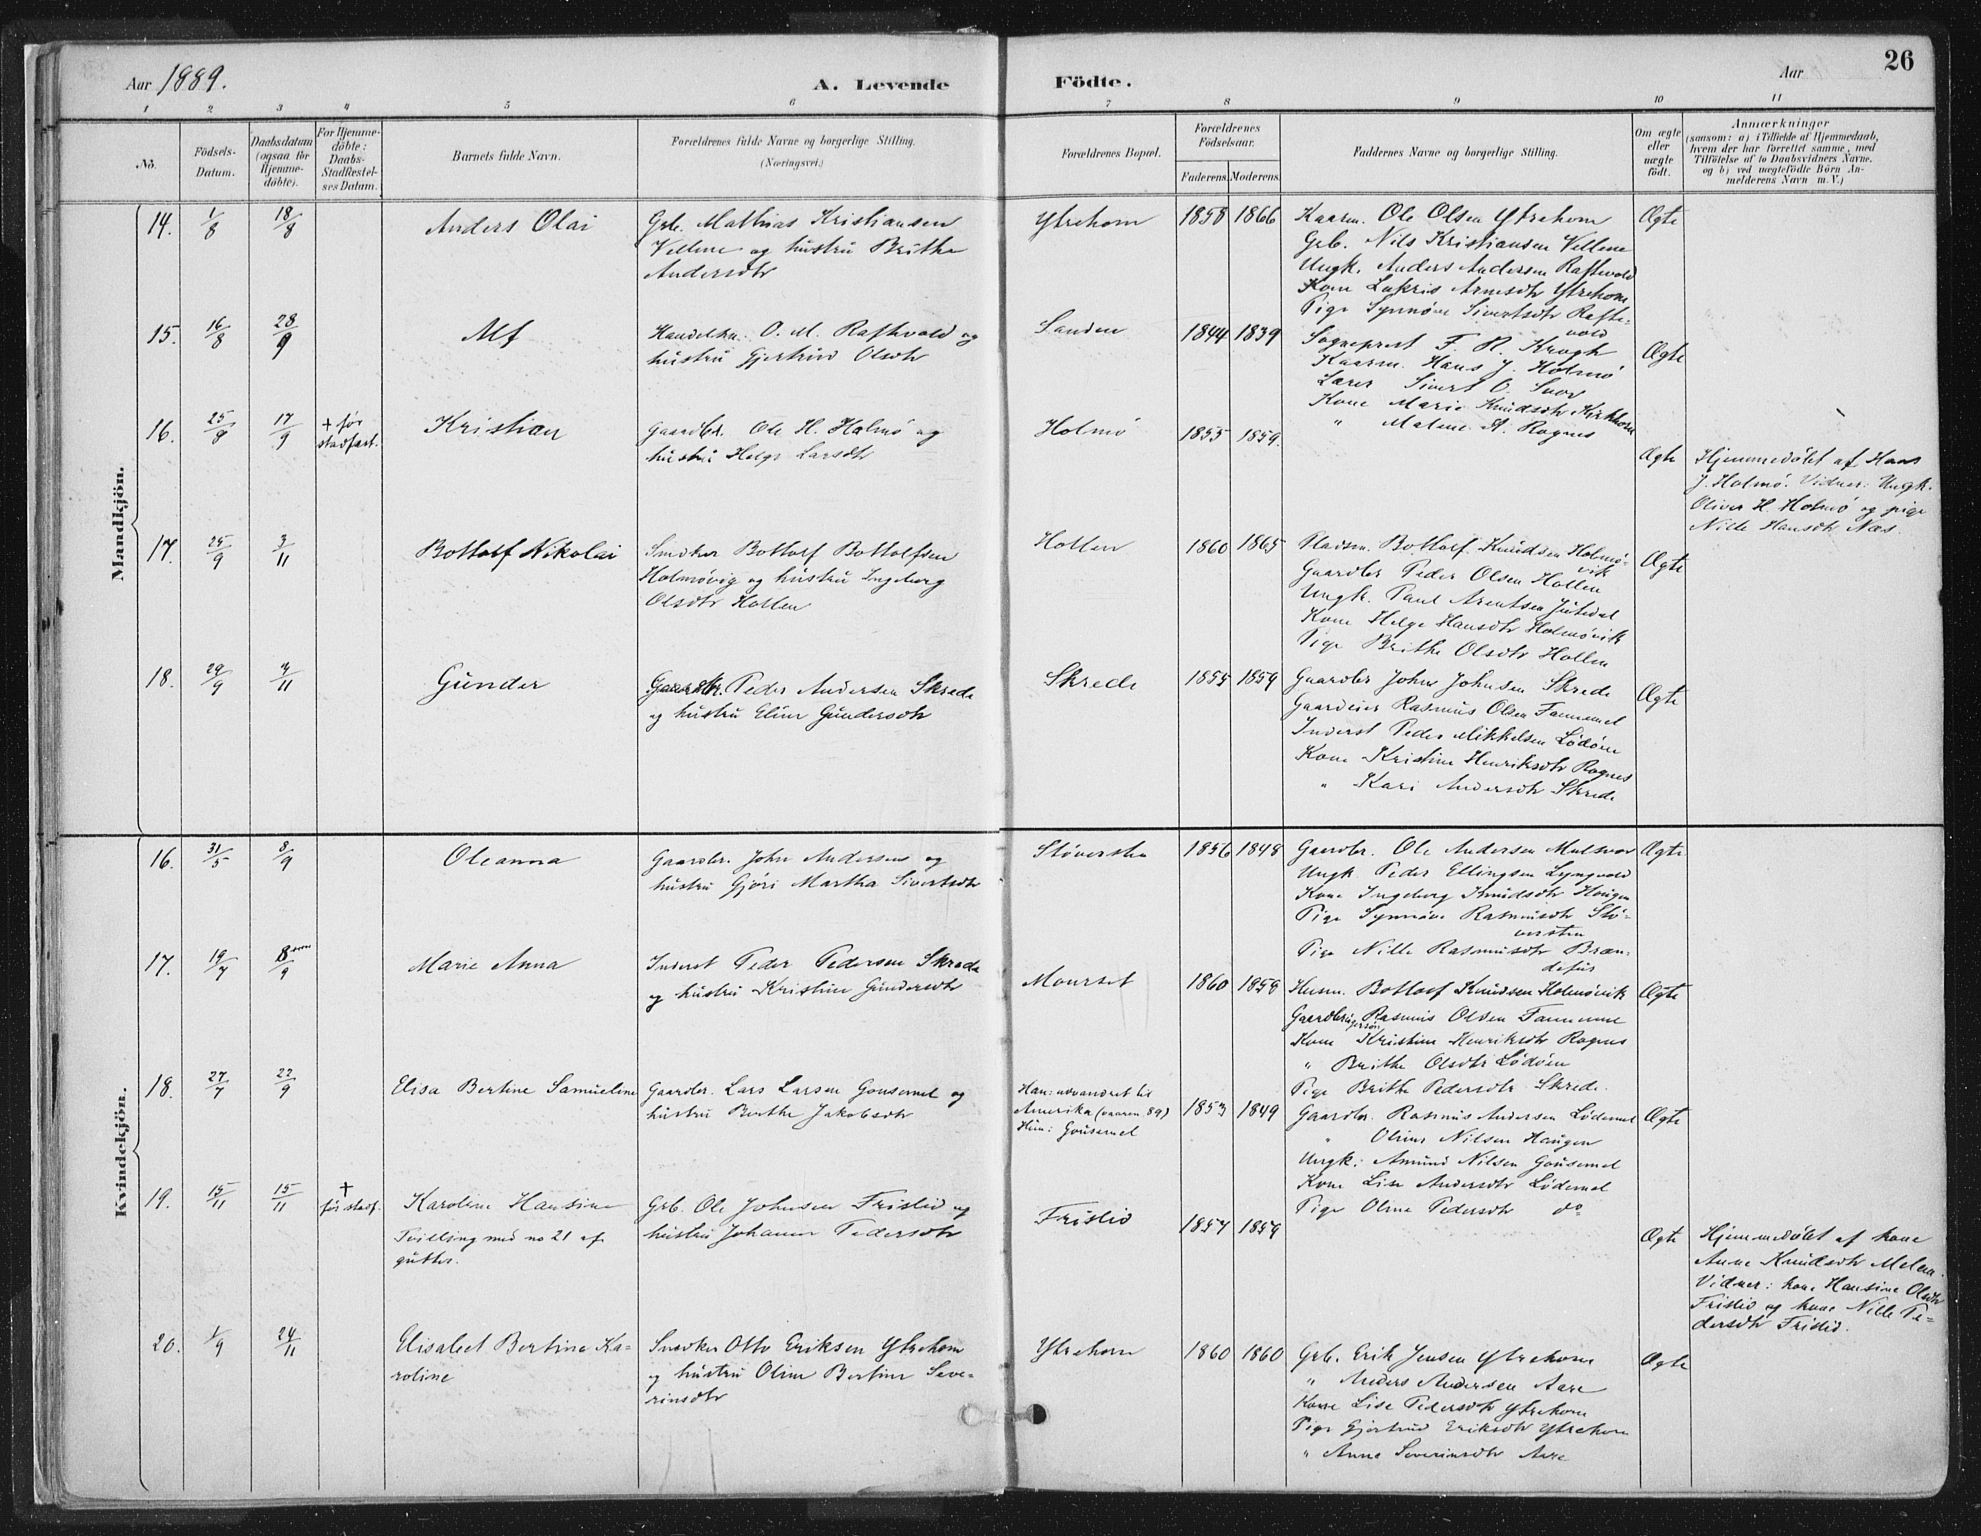 Aar 1889.
A. Levende
Födte.
Aar
26
1 2 3 4 5 6 7 8 9 10 11
No.
Födsels-
Datum.
Daabsdatum
(ogsaa for
Hjemme-
döbte).
For Hjemme-
döbte:
Daabs-
Stadfestel-
ses Datum.
Barnets fulde Navn.
Forældrenes fulde Navne og borgerlige Stilling.
(Næringsvei.)
Forældrenes Bopæl.
Forældrenes
Födselsaar.
Faderens. Moderens.
Faddernes Navne og borgerlige Stilling.
Om ægte
eller
uægte
født.
Anmærkninger
(saasom: a) i Tilfælde af Hjemmedaab,
hvem der har forrettet samme, med
Tilföielse af to Daabsvidners Navne.
og b) ved uægtefödte Börn An-
melderens Navn m. V.)
Mandkjön.
14. 1/8 18/8
Anders Olai
Grb. Mathias Kristiansen
Vellene og hustru Brithe
Andersdtr
Ytrehorn
1858 1866
Kaarm. Ole Olsen Ytrehorn
Grb. Nils Kristiansen Vellene
Ungk. Anders Andersen Raftevold
Kone Lukris Arnesdtr Ytrehorn
Pige Synnøve Sivertsdtr Rafte-
vold
Ægte
15. 16/8 28/9
Alf
Handelsm. O. M. Raftevold og
hustru Gjertrud Olsdtr
Sanden
1844 1839
Sogneprest F. R. Krogh
Kaarm. Hans J. Holmø
Lærer Sivert O. Svor
Kone Marie Knudsdtr Kirkhorn
" Malene A. Rognes
Ægte
16. 25/8 17/9
+ før
stadfæst.
Kristian
Gaardbr. Ole H. Holmø og
hustru Helge Larsdtr
Holmø
1855 1859.
Ægte
Hjemmedøbt af Hans
J. Holmø. Vidner: Ungk.
Oliver H. Holmø og pige
Nille Hansdtr Næs.
17. 25/9 3/11
Bottolf Nikolai
Snedker Bottolf Bottolfsen
Holmøvig og hustru Ingeborg
Olsdtr Hollen
Hollen
1860 1865
Pladsm. Bottolf Knudsen Holmø-
vik
Gaardbr Peder Olsen Hollen
Ungk. Paul Arentsen
Kone Helge Hansdtr Holmøvik
Pige Brithe Olsdtr Hollen
Ægte
18. 29/9 3/11
Gunder
Gaardbr. Peder Andersen Skrede
og hustru Eline Gundersdtr
Skrede
1855 1859
Gaardbr Johns Johnsen Skrede
Gaardeier Rasmus Olsen Fannemel
Inderst Peder Mikkelsen Lødøen
Kone Kristine Henriksdtr Rognes
" Kari Andersdtr Skrede
Ægte
Kvindekjön.
16. 31/5 8/9
Oleanna
Gaardbr. John Andersen og
hustru Gjøri Martha Sivertsdtr
Støversten
1856 1848
Gaardbr. Ole Andersen Mulsvor
Ungk. Peder Ellingsen Lyngvold
Kone Ingeborg Knudsdtr Haugen
Pige Synnøve Rasmusdtr Stø-
versten
Pige Nille Rasmusdtr Bræn-
dehus
Ægte
17. 19/7 8/9
Marie Anna
Inderst Peder Pedersen Skrede
og hustru Kristine Gundersdtr
Maurset
1860 1859
Husm. Bottolf Knudsen Holmøvik
Gaardbrugersøn Rasmus Olsen Fannemel
Kone Kristine Henriksdtr Rognes
" Brithe Olsdtr Lødøen
Pige Brithe Pedersdtr Skrede.
Ægte
18. 27/7 22/9
Elisa Bertine Samueline
Gaardbr. Lars Larsen Gausemel og
hustru Berthe Jakobsdtr
Han: udvandret til
Amerika (vaaren 89)
Hun: Gausemel
1853 1849
Gaardbr. Rasmus Andersen Lødemel
" Olinus Nilsen Haugen
Ungk: Amund Nilsen Gausemel
Kone Lise Andersdtr Lødemel
Pige Oline Pedersdtr do
Ægte
19. 15/11 15/11
+
før stadf.
Karoline Hansine
Tvilling med no 21 af
gutter.
Grb. Ole Johnsen Frislid og
hustru Johanne Pedersdtr
Frislid
1857 1859
Ægte
Hjemmedøbt af kone
Anne Knudsdtr Melen.
Vidner: kone Hansine Olsdtr
Frislid og kone Nille Pe-
dersdtr Frislid.
20. 1/9 24/11
Elisabet Bertine Ka-
roline
Snedker Otto Eriksen Ytrehorn
og hustru Oline Bertine Seve-
rinsdtr
Ytrehorn
1860 1860
Grb. Erik Jensen Ytrehorn
" Anders Andersen Aare
Kone Lise Pedersdtr Ytrehorn
Pige Gjertrud Eriksdtr Ytrehorn
" Anne Severinsdtr Aare
Ægte